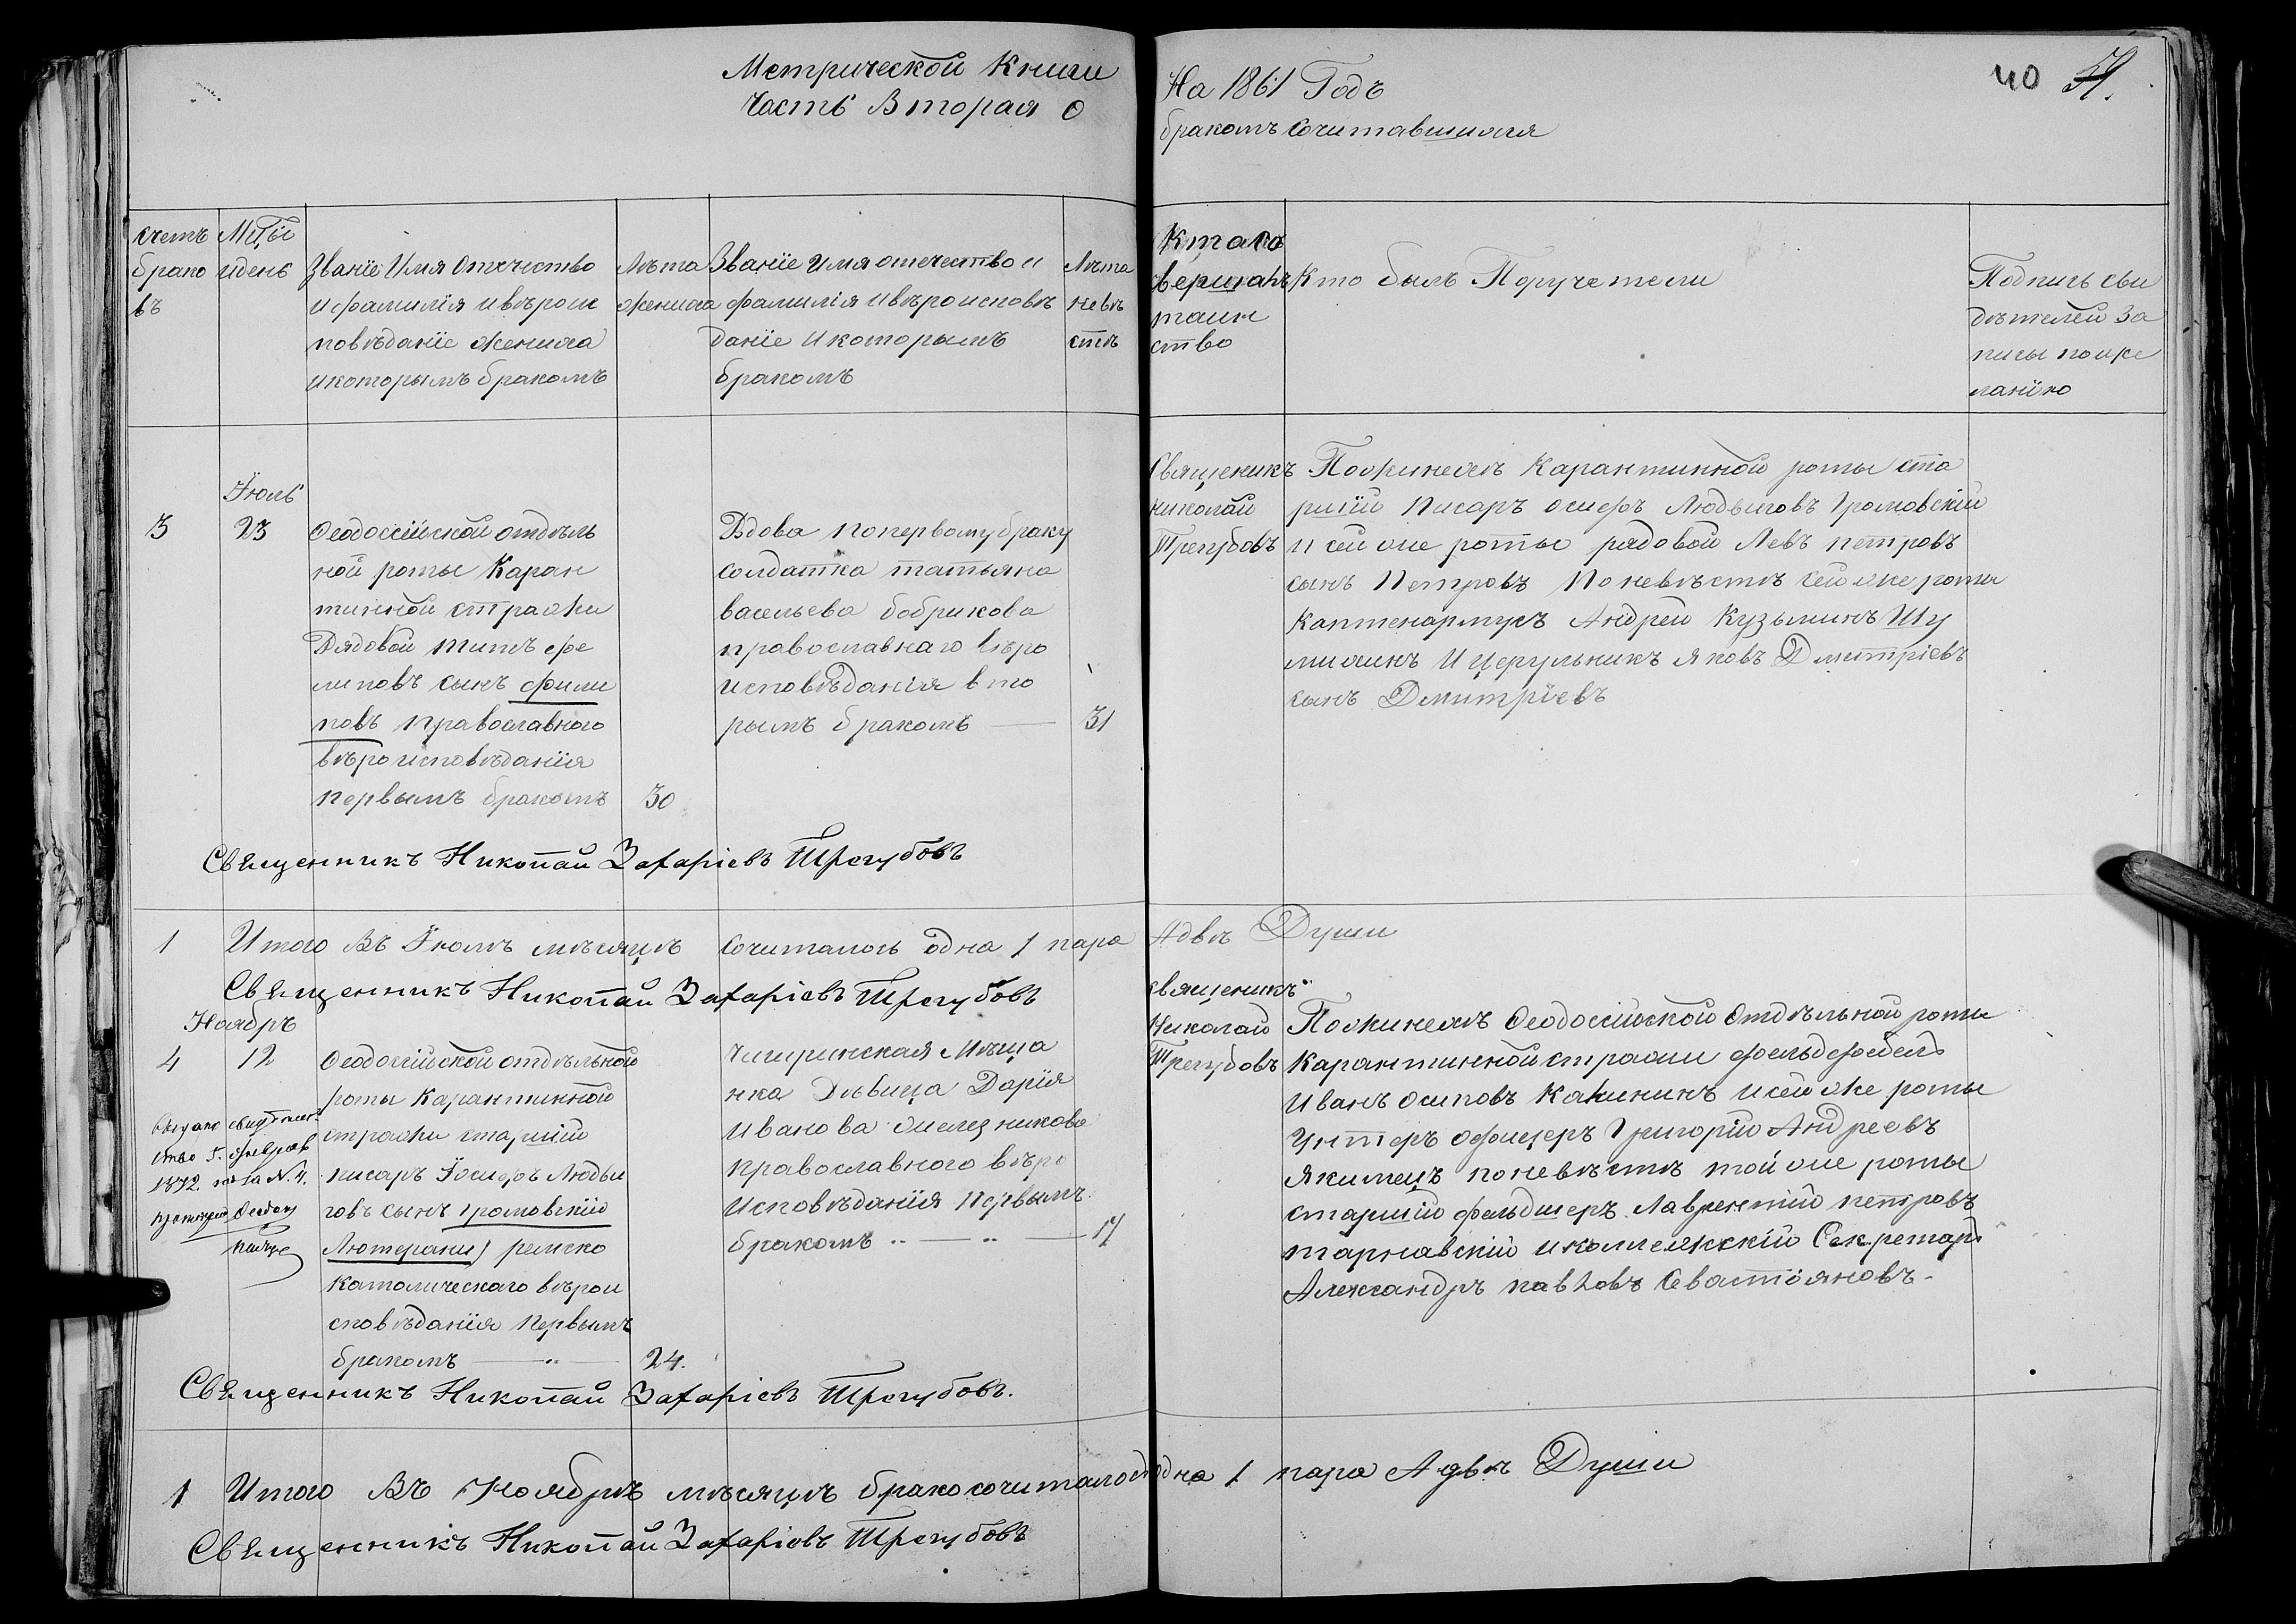 Метрической Книги
Часть Вторая О
На 1861 Годъ
бракомъ Сочитавшихся
40
счетъ
брако
въ
Мцы
и день
Званіе Имя Отечество
и фамилія и вѣроис
повѣданіе жениха
и которымъ бракомъ
Лѣта
жениха
Званіе имя отечество и
фамилія и вѣроисповѣ
даніе и которымъ
бракомъ
Лѣта
невѣ
стѣ
Кто со
вершалъ
таин
ство
Кто былъ Поручетели
Подпись сви
дѣтелей за
писы по же
ланію
3
Іюль
23
Феодоссійской отдѣль
ной роты Каран
тинной стражи
Рядовой Титъ фе
липовъ сынъ фили
повъ православного
вѣроисповѣданія
первымъ бракомъ
30
Вдова по первому браку
солдатка татьяна
васельева бобрикова
православнаго вѣро
исповѣданія вто
рымъ бракомъ
31
Священикъ
николай
Трегубовъ
По жинехѣ Карантинной роты ста
ршій писаръ осифъ Людвиговъ Громовскій
и сей же роты рядовой Левъ петровъ
сынъ Петровъ По невѣстѣ сей же роты
Каптенармусъ Андрей Кузьминъ Шу
михинъ И церульникъ яковъ Дмитріевъ
сынъ Дмитріевъ
Священникъ Николай Захаріевъ Трегубовъ
1 Итого Въ Іюлѣ мѣсяцѣ сочиталось одна 1 пара А двѣ Души
Священникъ Николай Захаріевъ Трегубовъ
Ноябръ
4
12
1872
Феодосійской отдѣльной
роты Карантинной
стражи старшій
писаръ Іосифъ Людви
говъ сынъ громовскій
Лютерани) римско
католическаго вѣрои
сповѣданія первымъ
бракомъ
24.
чигиринская Мѣща
нка Дѣвица Дарія
Иванова
православного вѣро
Исповѣданія первымъ
бракомъ
17
священикъ
Николай
Трегубовъ
По жинехѣ Феодоссійской Отдѣльной роты
Карантинной стражи фельдфебель
Иванъ осиповъ Калининъ и сей же роты
Унтеръ офицеръ Григорій Андреевъ
Якимецъ по невѣстѣ той же роты
старшій фельдшеръ Лаврентій петровъ
тарнавскій и коллежскій Секретарь
Александръ павловъ Севастіяновъ
Священникъ Николай Захаріевъ Трегубовъ.
1 Итого Въ Ноябрѣ мѣсяцѣ бракосочиталось одна 1 пара А двѣ Души
Священникъ Николай Захаріевъ Трегубовъ